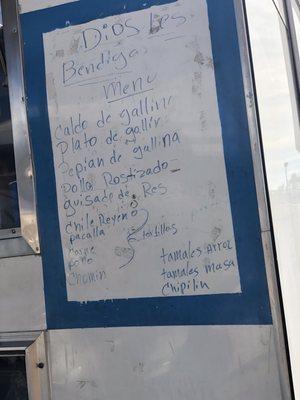 Dios Les
Bendiga
menu
caldo de gallina
Plato de gallin
Pepian de gallina
Pollo Rostizado
guisado de Res
chile Reyeno
pacalla
carne
pollo
Chomin
tortillas
tamales Arroz
tamales masa
chipilin